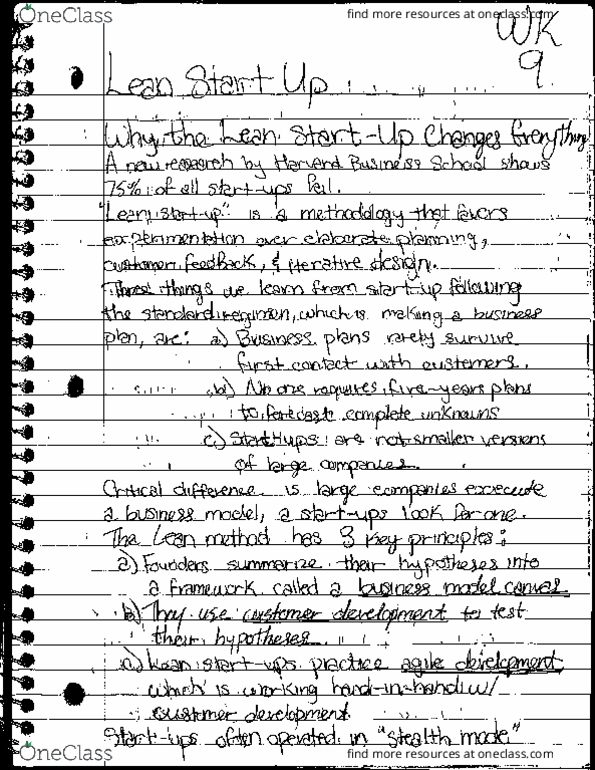 OneClass
find more resources at oneclass.com
WK
9
Lean Start Up
Why the Lean Start-Up Changes Everything
A new research by Harvard Business School shows
75% of all start-ups fail.
"Lean start-up" is a methodology that favors
experimentation over elaborate planning,
customer feedback, & iterative design.
Three things we learn from start-up following
the standard regimen, which is making a business
plan, are: a) Business plans rarely survive
first contact with customers.
b) No one requires five-years plans
to forecast complete unknowns
c) Start-ups are not smaller versions
of large companies.
Critical difference is large companies excecute
a business model, a start-ups look for one.
The Lean method has 3 key principles:
a) Founders summarize their hypotheses into
a framework called a business model canvas
b) They use customer development to test
their hypotheses
c) Lean start-ups practice agile development
which is working hand-in-hand w/
customer development
Start-ups often operated in "stealth mode"
OneClass
find more resources at oneclass.com